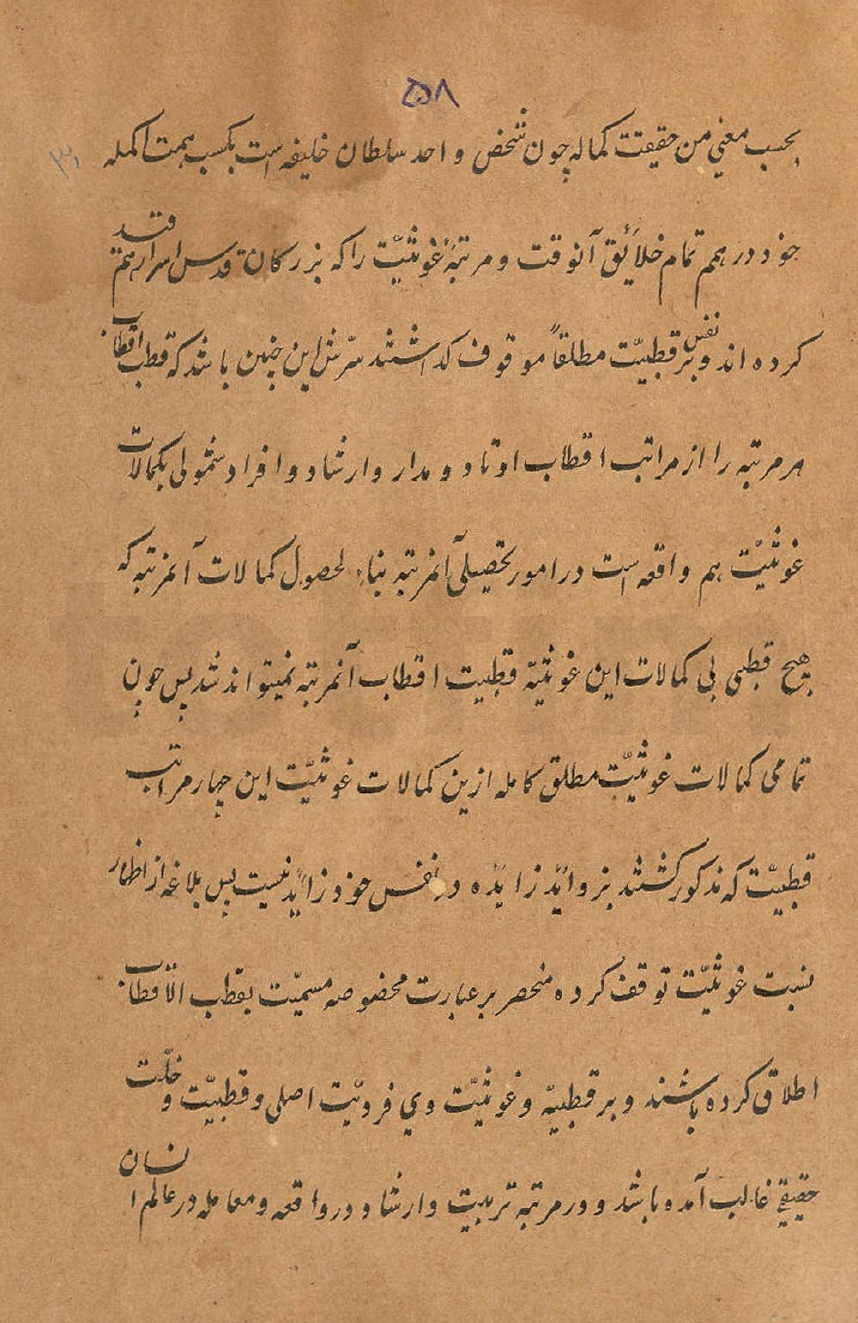 ۵۸
بحسب معنی من حقیقت کماله چون شخص واحد سلطان خلیفه است بکسب همت اکمله
خود در همم تمام خلائق آنوقت و مرتبۀ غوثیّت را که بزرگان قدس اسرارهم قید
کرده اند و بر نفس قطبیّت مطلقاً موقوف گذاشتند سرّش این چنین باشد که قطب اقطاب
هر مرتبه را از مراتب اقطاب اوتاد و مدار و ارشاد و افراد شمولی بکمالات
غوثیّت هم واقعه است در امور تحصیلی آنمرتبه بناءِ لحصول کمالات آنمرتبه که
هیچ قطبی بی کمالات این غوثیّه قطبیت اقطاب آنمرتبه نمیتواند شد پس چون
تمامی کمالات غوثیّت مطلق کامله ازین کمالات غوثیّت این چهار مراتب
قطبیّت که مذکور گشتند بزوائد زایده در نفس خود زائد نیست پس بلاغه از اظهار
نسبت غوثیّت توقف کرده منحصر بر عبارت مخصوصه مسمیّت بقطب الاقطاب
اطلاق کرده باشند و بر قطبیّه و غوثیّت وی فردیّت اصلی و قطبیّت و خلّت
حقیقی غالب آمده باشد و در مرتبه تربیت و ارشاد و در واقعه و معامله در عالم انسان